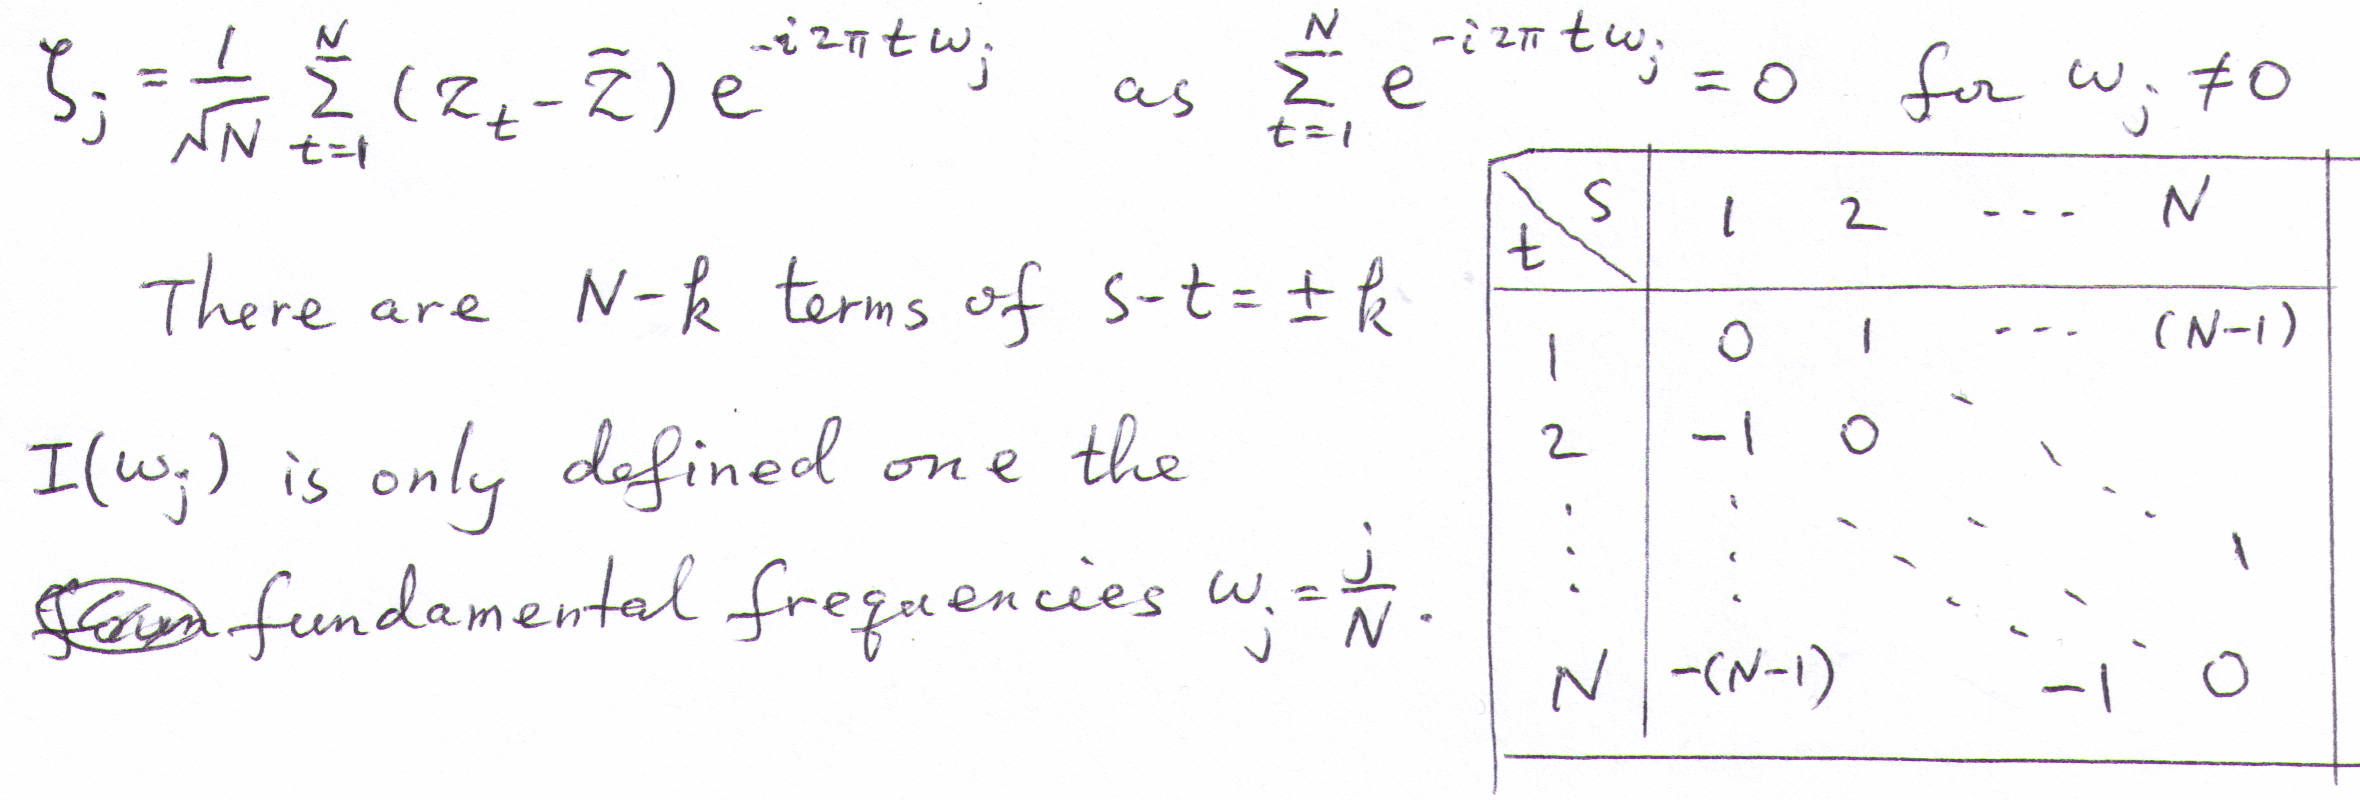 ζ_j = 1/√N ∑_{t=1}^{N} (z_t - z̄) e^{-i2πtω_j} as ∑_{t=1}^{N} e^{-i2πtω_j} = 0 for ω_j ≠ 0
There are N-k terms of s-t = ±k
I(ω_j) is only defined one the
fundamental frequencies ω_j = j/N.
t \ s 1 2 --- N
1 0 1 --- (N-1)
2 -1 0
⋮ ⋮ 1
N -(N-1) -1 0